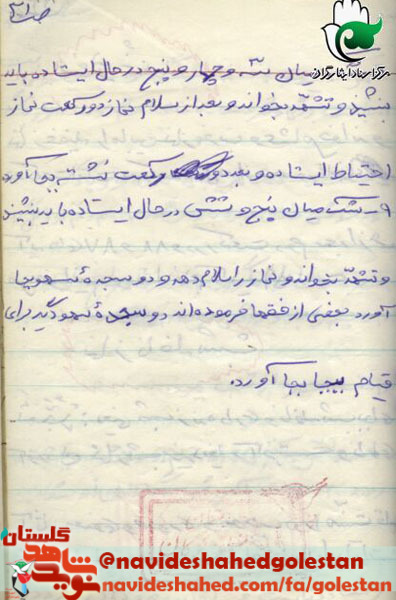 ص ۳۱
مرکز اسناد ایثارگران
میان سه و چهار و پنج در حال ایستاده باید
بنشیند و تشهد بخواند و بعد از سلام نماز دو رکعت نماز
احتیاط ایستاده و بعد دو رکعت نشسته بجا آورد
۹- شک میان پنج و شش در حال ایستاده باید بنشیند
و تشهد بخواند و نماز را سلام دهد و دو سجدهٔ سهو بجا
آورد بعضی از فقها فرموده‌اند دو سجدهٔ سهو دیگر برای
قیام بیجا بجا آورد.
گلستان
نوید شاهد
@navideshahedgolestan
navideshahed.com/fa/golestan